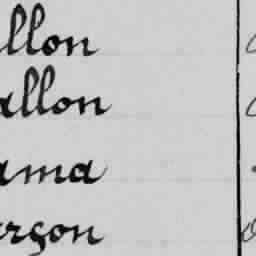 llon
allon
ama
erson